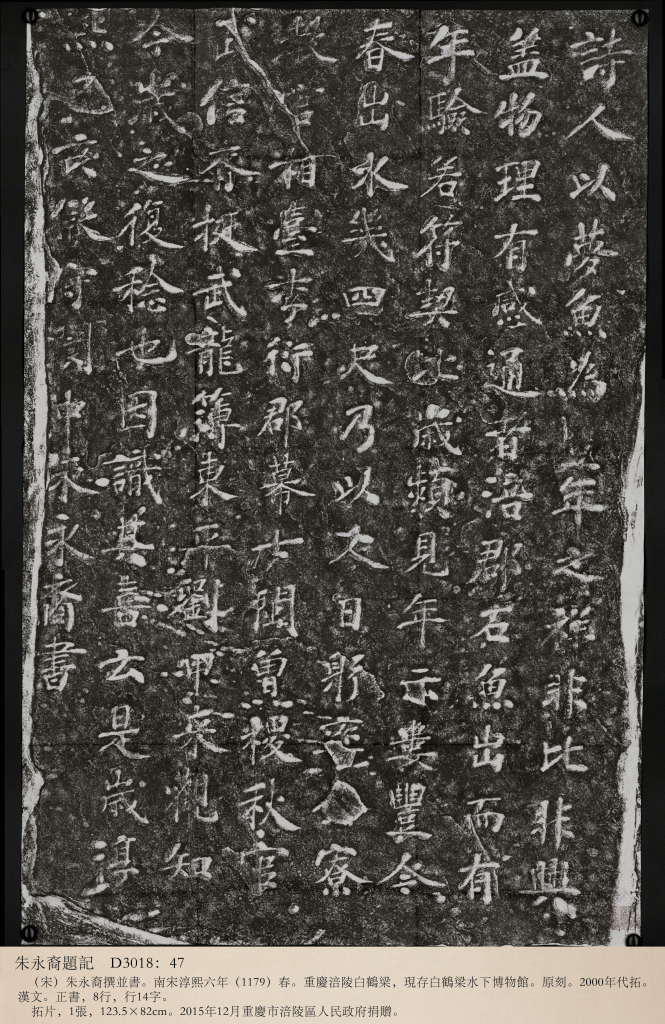 詩人以夢魚為年之祥非比非興
蓋物理有感通者涪郡石魚出而有
年驗若符契比歲頻見年示婁豐今
春出水幾四尺乃以人日躬率寮
相臺李衍郡幕七閩曾稷秋官
武信胥挺武龍簿東平劉甲來觀知
今歲之復稔也因識其喜云是歲淳
熙己亥假守閬中朱永裔書
朱永裔題記 D3018：47
（宋）朱永裔撰並書。南宋淳熙六年（1179）春。重慶涪陵白鶴梁，現存白鶴梁水下博物館。原刻。2000年代拓。
漢文。正書，8行，行14字。
拓片，1張，123.5×82cm。2015年12月重慶市涪陵區人民政府捐贈。